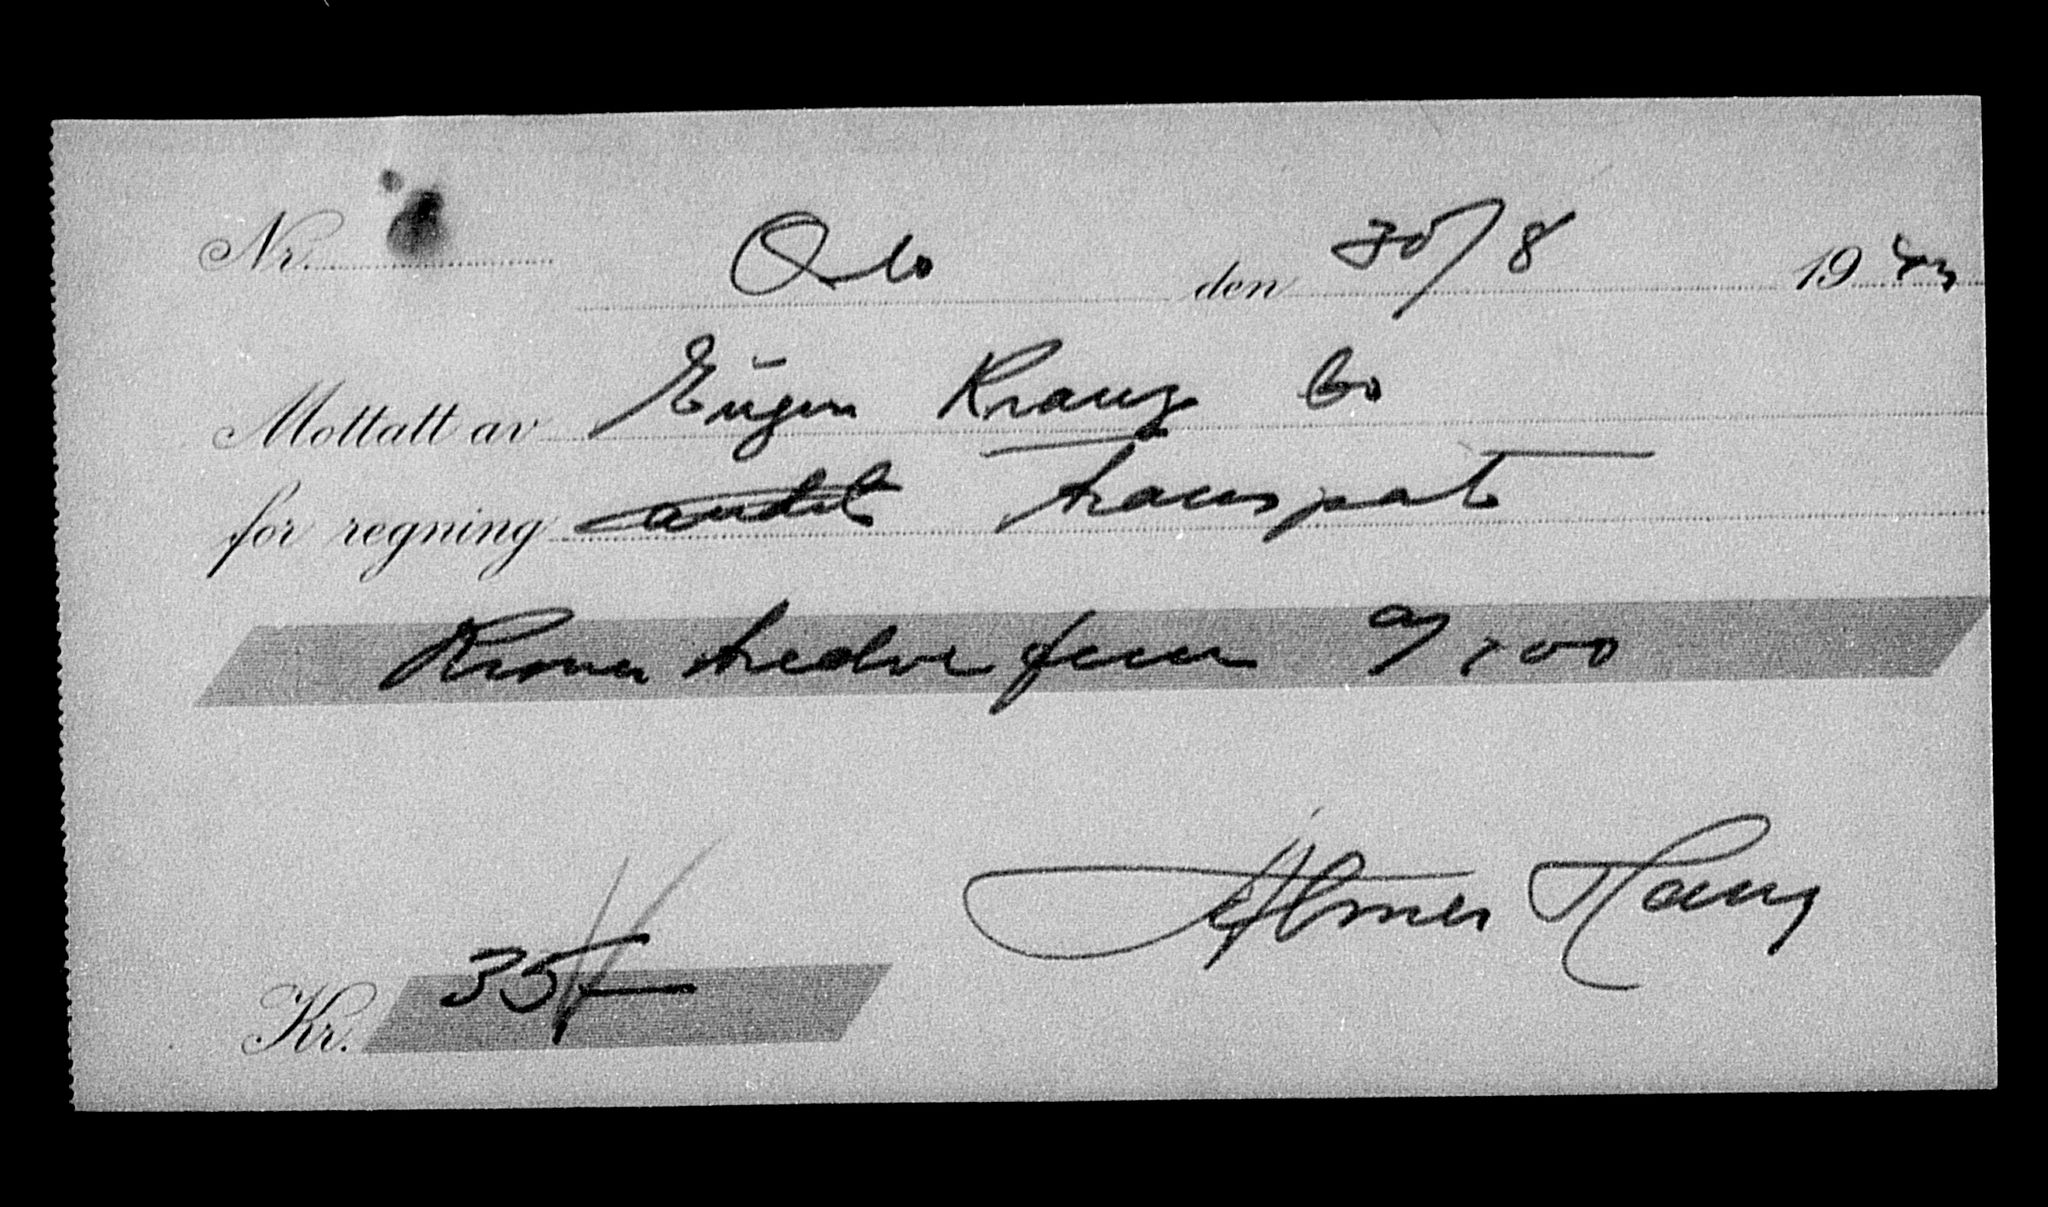 Nr. Oslo den 30/8 1943
Mottatt av Eugen Kranz bo
for regning transport
Kroner tredve fem 0/100
Kr. 35